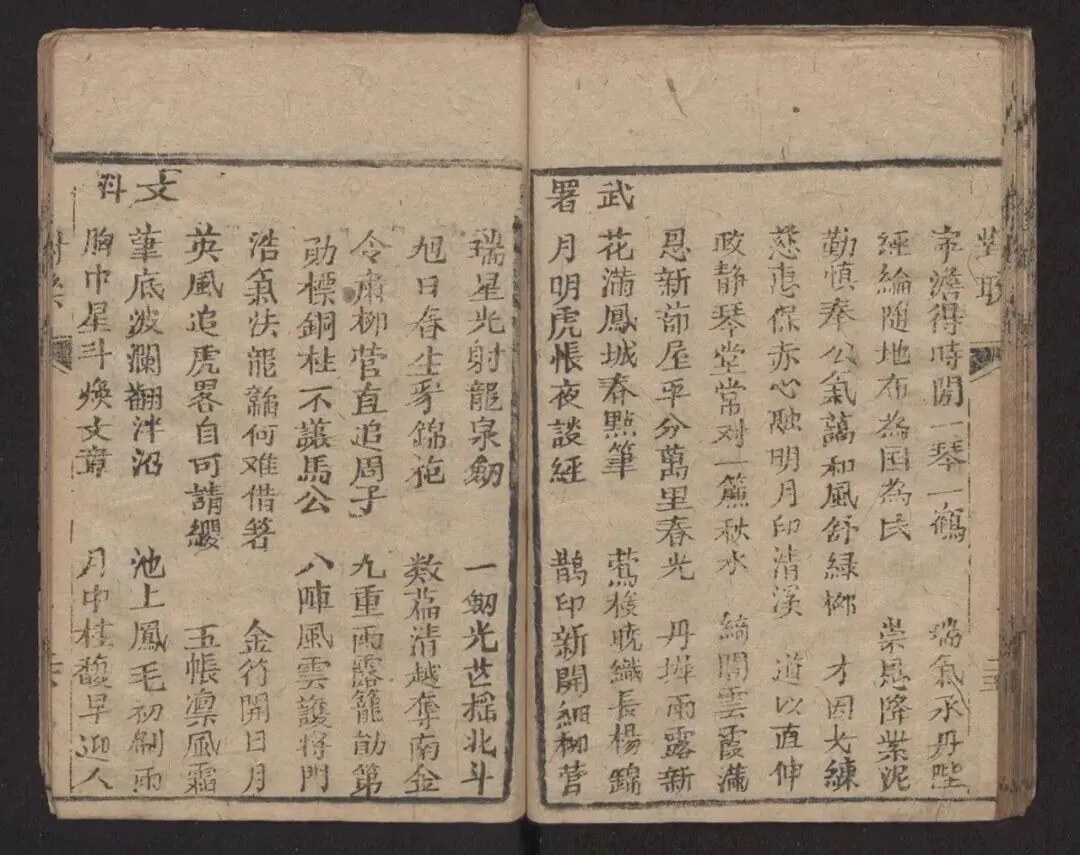 寧澹得時閒一琴一鶴 瑞氣承丹陛
經綸隨地布為国為民 崇恩降紫泥
勤慎奉公氣藹和風舒緑栁 才因大練
慈惠保赤心融明月印清溪 道以直伸
政静琴堂常对一簾秋水 綺閣雲霞滿
恩新蔀屋平分萬里春光 丹墀雨露新
花滿鳳城春點筆 鶯梭曉織長楊錦
武署
月明虎帳夜談經 鵲印新開細栁營
瑞星光射龍泉劒 一劒光芒摇北斗
旭日春生豸錦袍 数篇清越奪南金
令肅柳營直追周子 九重雨露寵勛第
勛標銅柱不讓馬公 八陣風雲護將門
浩氣法龍韜何难借箸 金符開日月
英風追虎畧自可請纓 玉帳凛風霜
文科
筆底波瀾翻泮沼 池上鳳毛初
胸巾星斗焕文章 月中桂馥早迎人